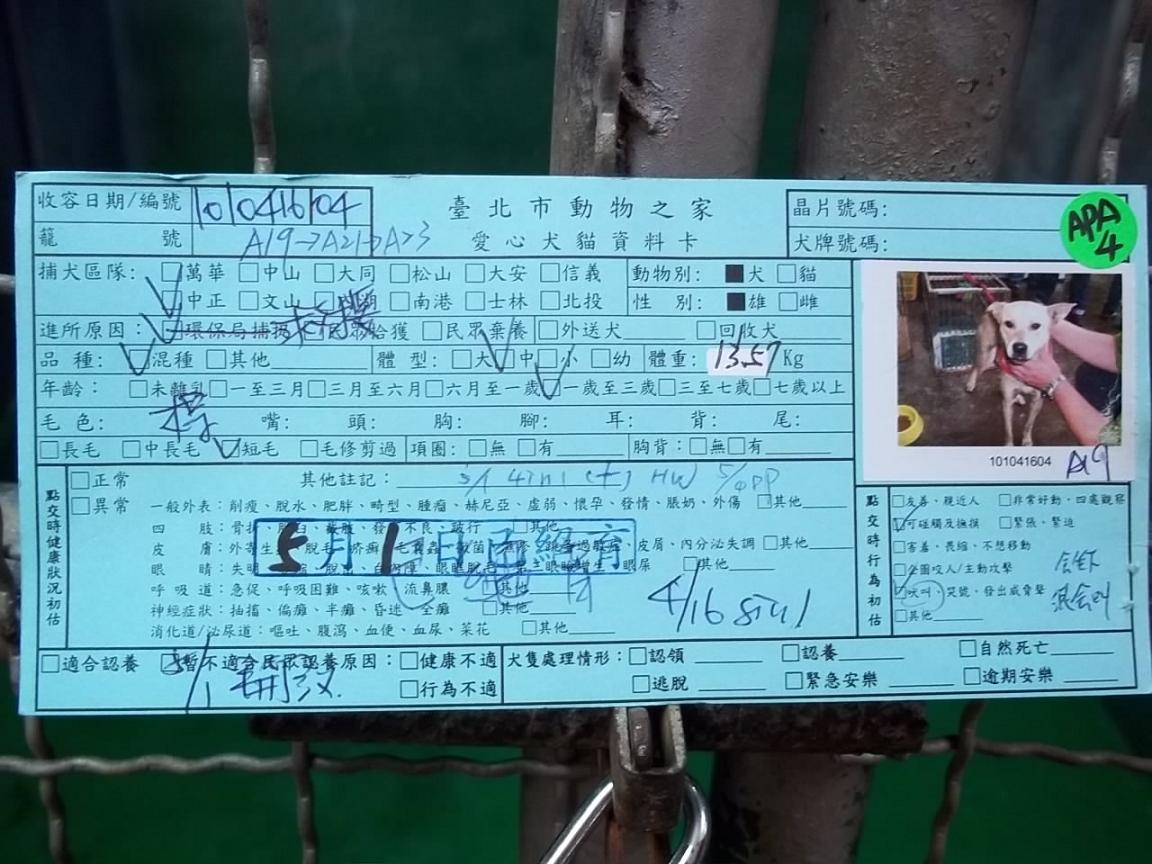 收容日期/編號 101041604
臺北市動物之家
晶片號碼:
APA 4
籠號 A19→A21→A23
愛心犬貓資料卡
犬牌號碼:
捕犬區隊: □萬華 □中山 □大同 □松山 □大安 □信義
動物別: ■犬 □貓
□中正 □文山 □南港 □士林 □北投
性別: ■雄 □雌
進所原因: □環保局捕捉 拾獲 □民眾棄養 □外送犬 □回收犬
品種: □混種 □其他
體型: □大 □中 □小 □幼
體重: 13.57 Kg
年齡: □未離乳 □一至三月 □三月至六月 □六月至一歲 □一歲至三歲 □三至七歲 □七歲以上
毛色: 嘴: 頭: 胸: 腳: 耳: 背: 尾:
□長毛 □中長毛 □短毛 □毛修剪過
項圈: □無 □有
胸背: □無 □有
101041604 A19
點交時健康狀況初估
□正常 其他註記:
□異常 一般外表: 削瘦、脫水、肥胖、畸型、腫瘤、赫尼亞、虛弱、懷孕、發情、脹奶、外傷 □其他
四肢: 骨折、不良、跛行 □其他
5月1日 絕育
皮膚: 皮屑、內分泌失調 □其他
眼睛: 眼屎 □其他
呼吸道: 急促、呼吸困難、咳嗽、流鼻膿 □其他
神經症狀: 抽搐、偏癱、半癱、昏迷、全癱 □其他
消化道/泌尿道: 嘔吐、腹瀉、血便、血尿、菜花 □其他
4/16
點交時行為初估
□友善、親近人 □非常好動、四處觀察
□可碰觸及撫摸 □緊張、緊迫
□害羞、畏縮、不想移動
□企圖咬人/主動攻擊
□吠叫、哭號、發出威脅聲
□其他
□適合認養 □暫不適合民眾認養原因: □健康不適
□行為不適
5/1 開放
犬隻處理情形: □認領 □認養 □自然死亡
□逃脫 □緊急安樂 □逾期安樂